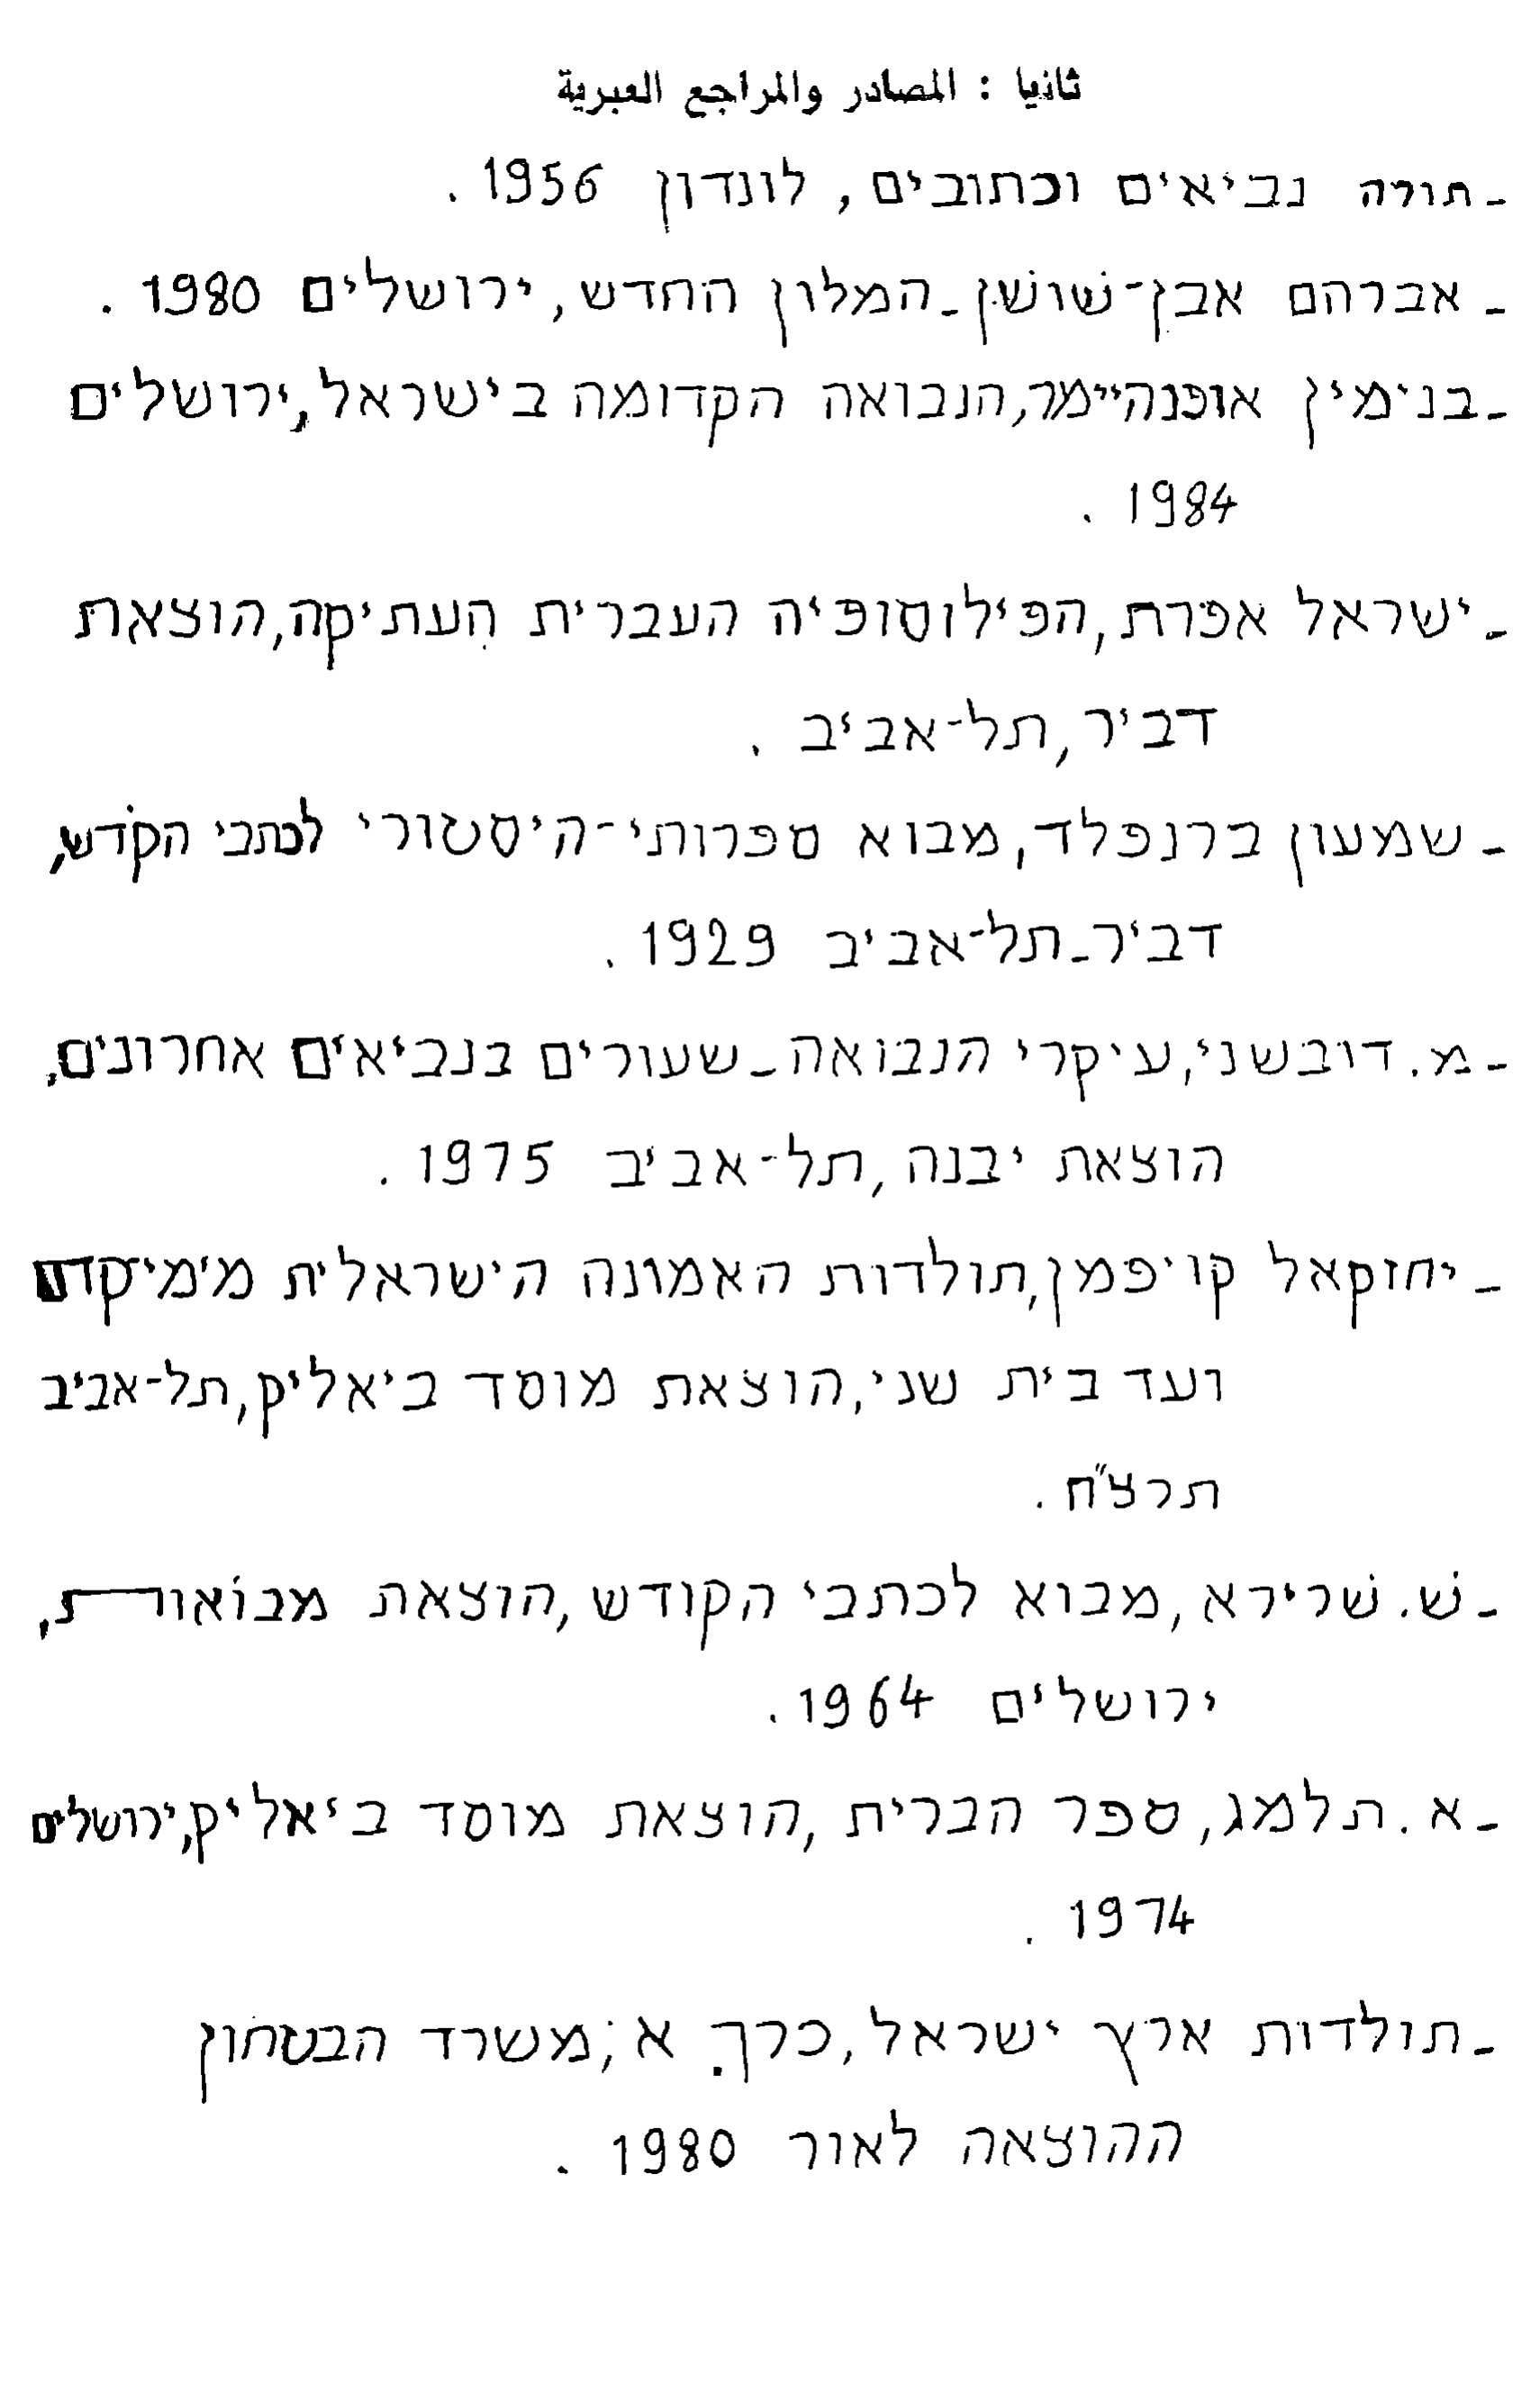 ثانيا : المصادر والمراجع العبرية
-תורה נביאים וכתובים, לונדון 1956 .
- אברהם אבן-שושן-המלון החדש, ירושלים 1980 .
-בנימין אופנהיימר,הנבואה הקדומה בישראל,ירושלים
1984 .
-ישראל אפרת,הפילוסופיה העברית העתיקה,הוצאת
דביר,תל-אביב .
- שמעון ברנפלד,מבוא ספרותי-היסטורי לכתבי הקדש,
דביר-תל-אביב 1929 .
-מ.דובשני,עיקרי הנבואה-שעורים בנביאים אחרונים,
הוצאת יבנה,תל-אביב 1975 .
-יחזקאל קויפמן,תולדות האמונה הישראלית מימי קדם
ועד בית שני,הוצאת מוסד ביאליק,תל-אביב
תרצ"ח .
-ש. שרירא,מבוא לכתבי הקודש,הוצאת מבואות,
ירושלים 1964 .
-א.תלמג,ספר הברית,הוצאת מוסד ביאליק,ירושלים
1974 .
-תולדות ארץ ישראל,כרך א;משרד הבטחון
ההוצאה לאור 1980 .